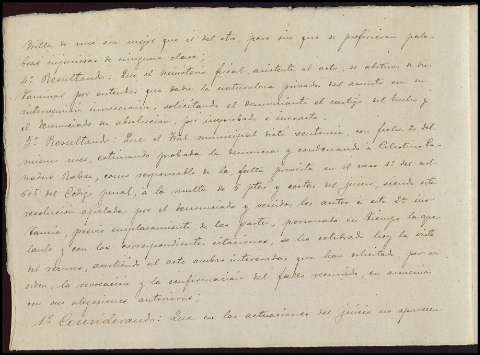 de una con mujer que el del otro, pero sin que se profirieran pala-
bras injuriosas de ninguna clase;
4º Resultando: Que el Ministerio fiscal, asistente al acto, se abstuvo de dic-
taminar por entender que dada la naturaleza privada del asunto era su
intervención innecesaria, solicitando el denunciante el castigo del hecho y
el denunciado su absolución, por improbado e incierto.
5º Resultando: Que el Tral. municipal dictó sentencia, con fecha 20 del
mismo mes, estimando probada la denuncia y condenando á Celestino
como responsable de la falta prevista en el caso 1º del art.
605 del Código penal, á la multa de 5 ptas y costas del juicio, siendo esta
resolución apelada por el denunciado y venidos los autos á esta 2ª ins-
tancia, previo emplazamiento de las partes, personado en tiempo la ape-
lante y con las correspondientes citaciones, se ha celebrado hoy la vista
del recurso, asistiendo al acto ambos interesados, que han solicitado por su
orden, la revocación y la confirmación del fallo recurrido, en armonía
con sus alegaciones anteriores;
1º Considerando: Que en las actuaciones del juicio no aparecen